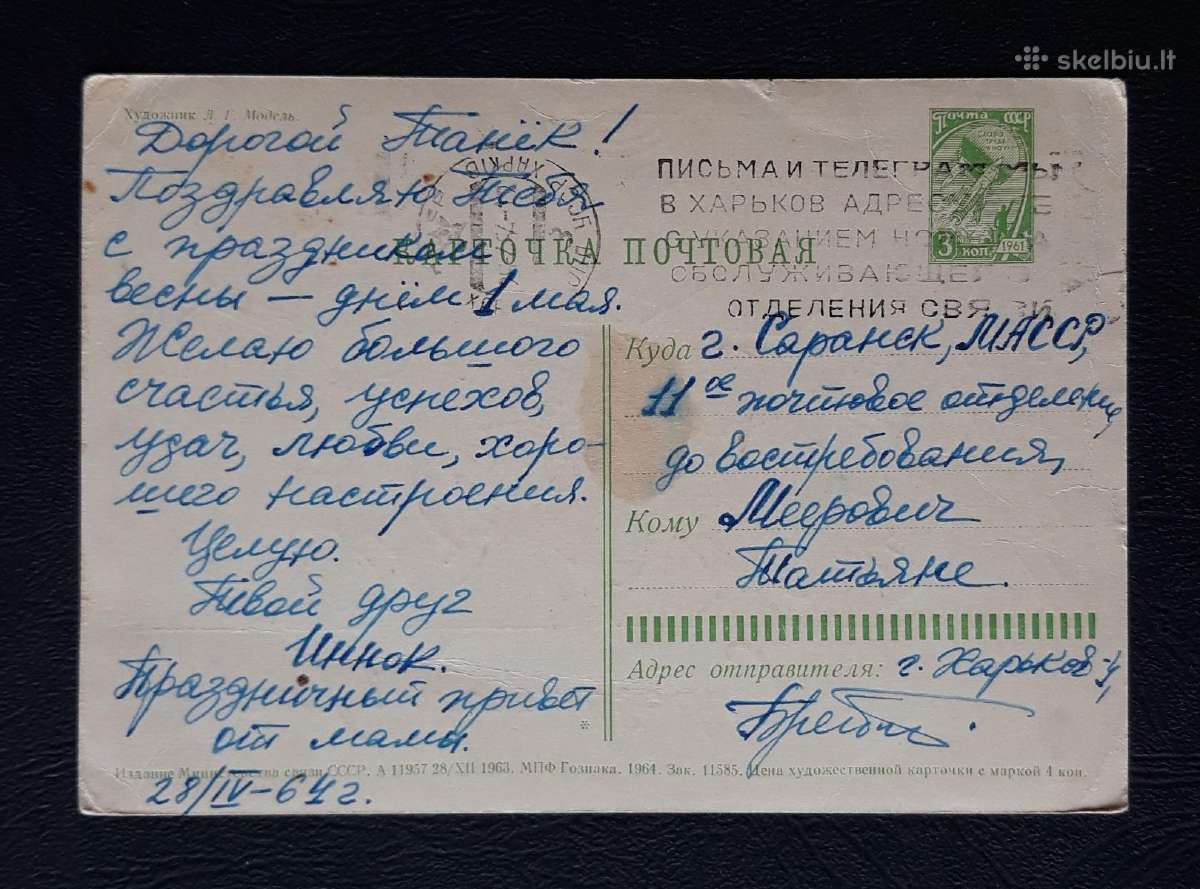 skelbiu.lt
Художник Л. Г. Модель.
Дорогой Танёк!
Поздравляю Тебя
с праздником
весны — днём 1 мая.
Желаю большого
счастья, успехов,
удач, любви, хоро-
шего настроения.
Целую.
Твой друг
Иннок.
Праздничный привет
от мамы.
28/IV-64 г.
КАРТОЧКА ПОЧТОВАЯ
Почта СССР
3 коп.
1961
ПИСЬМА И ТЕЛЕГРАММЫ
В ХАРЬКОВ
С УКАЗАНИЕМ
ОТДЕЛЕНИЯ СВЯЗИ
Куда г. Саранск, МАССР,
11ое почтовое отделение
до востребования,
Кому Меерович
Татьяне.
Адрес отправителя: г. Харьков-4,
Издание Министерства связи СССР. А 11957 28/XII 1963. МПФ Гознака. 1964. Зак. 11585. Цена художественной карточки с маркой 4 коп.